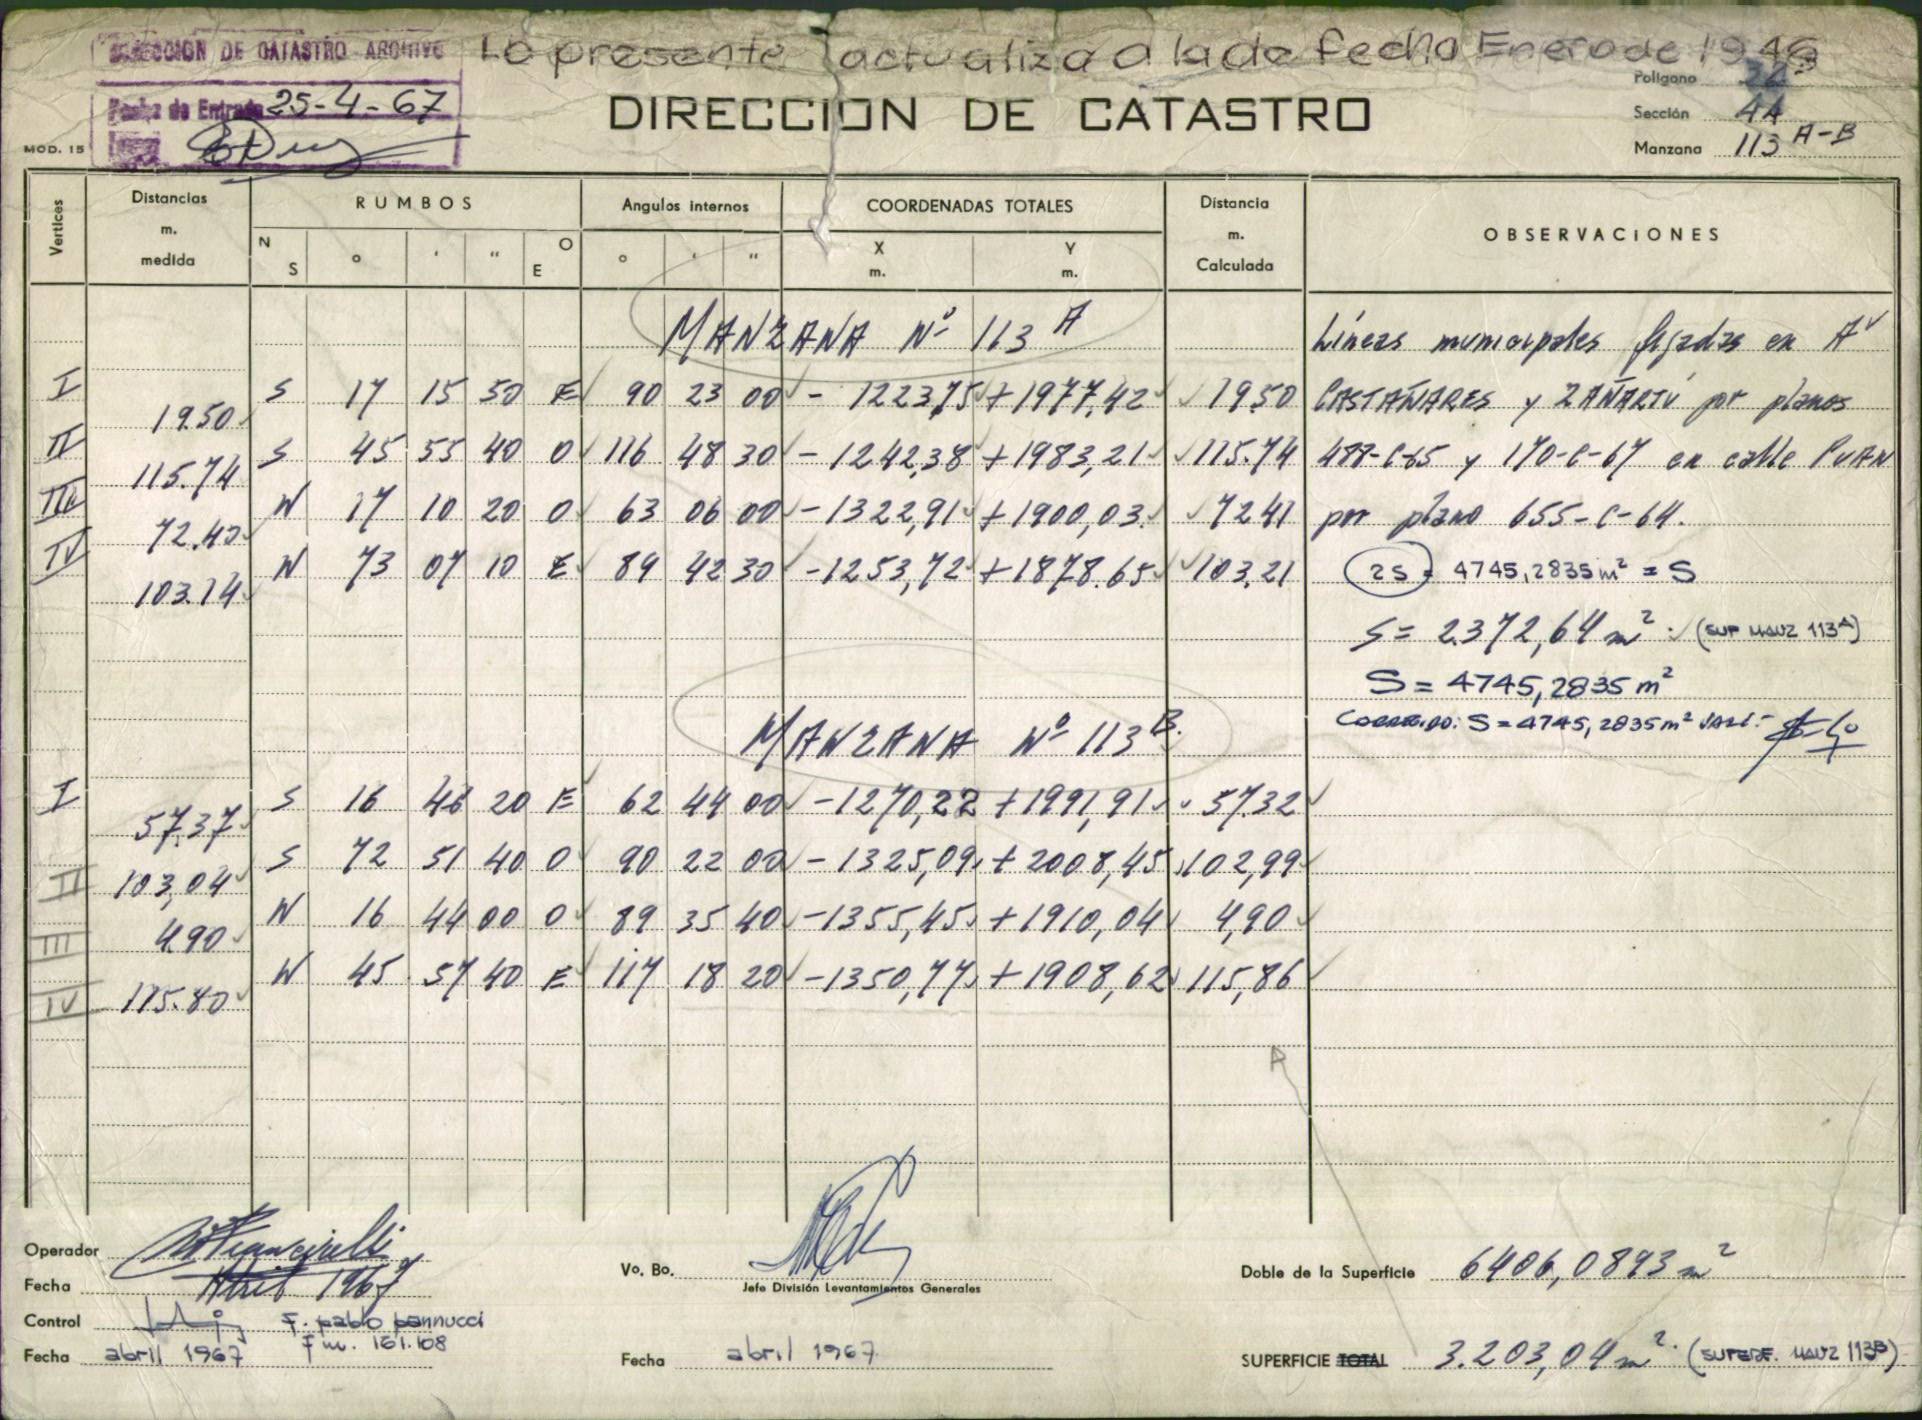 DIRECCION DE CATASTRO ARCHIVO
Fecha de Entrada 25-4-67
La presente actualiza a la de fecha Enero de 1946
DIRECCION DE CATASTRO
Polígono
Sección 4A
Manzana 113 A-B
MOD. 15
Vertices Distancias m. medida RUMBOS Angulos internos COORDENADAS TOTALES Distancia m. Calculada OBSERVACIONES
N S ° ' " O E ° ' " X m. Y m.
MANZANA Nº 113 A
Líneas municipales fijadas en Av
I S 17 15 50 E 90 23 00 - 1223,75 +1977,42 19.50 CASTAÑARES y ZAÑARTÚ por planos
19.50
II S 45 55 40 O 116 48 30 - 1242,38 +1983,21 115.74 488-C-65 y 170-C-67 en calle PUAN
115.74
III N 17 10 20 O 63 06 00 -1322,91 +1900,03. 72.41 por plano 655-C-64.
72.40
IV N 73 07 10 E 89 42 30 -1253,72 +1878.65 103.21 2S = 4745,2835 m² = S
103.14
S = 2.372,64 m². (SUP MANZ 113A)
S = 4745,2835 m²
CORREGIDO: S = 4745,2835 m² VALE.-
MANZANA Nº 113 B.
I S 16 46 20 E 62 44 00 -1270,22 +1991,91 57.32
57,37
II S 72 51 40 O 90 22 00 -1325,09 +2008,45 102,99
103,04
III N 16 44 00 O 89 35 40 -1355,45 +1910,04 4,90
4.90
IV N 45 57 40 E 117 18 20 -1350,77 +1908,62 115,86
115.80
Operador
Fecha Abril 1967
Control F. pablo pannucci
F.M. 161.108
Fecha abril 1967
Vo. Bo.
Jefe División Levantamientos Generales
Fecha abril 1967
Doble de la Superficie 6406,0893 m²
SUPERFICIE TOTAL 3.203,04 m². (SUPERF. MANZ 113B)